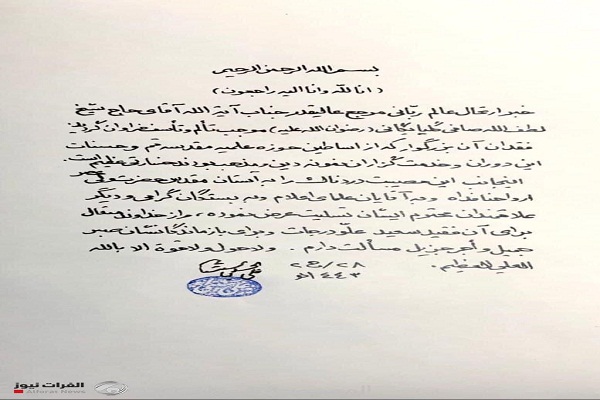 بسم الله الرحمن الرحیم
(انا لله وانا الیه راجعون)
خبر ارتحال عالم ربانی مرجع عالیقدر جناب آیة الله آقای حاج شیخ
لطف الله صافی گلپایگانی (رضوان الله علیه) موجب تألم وتأسف فراوان گردید.
فقدان آن بزرگوار که از اساطین حوزه علمیه مقدسه قم و حسنات
این دوران و خدمت گزاران نمونه دین و مذهب بودند خسارتی عظیم است.
اینجانب این مصیبت دردناک را به آستان مقدس حضرت ولی عصر
ارواحنا فداه و به آقایان علمای اعلام و به بستگان گرامی و دیگر
علاقمندان محترم ایشان تسلیت عرض نموده، و از خداوند متعال
برای آن فقید سعید علو درجات و برای بازماندگانشان صبر
جمیل و اجر جزیل مسألت دارم. ولا حول ولا قوة الا بالله
العلی العظیم.
۲۸/ج۲
۱۴۴۳
الفرات نيوز
Alforat News